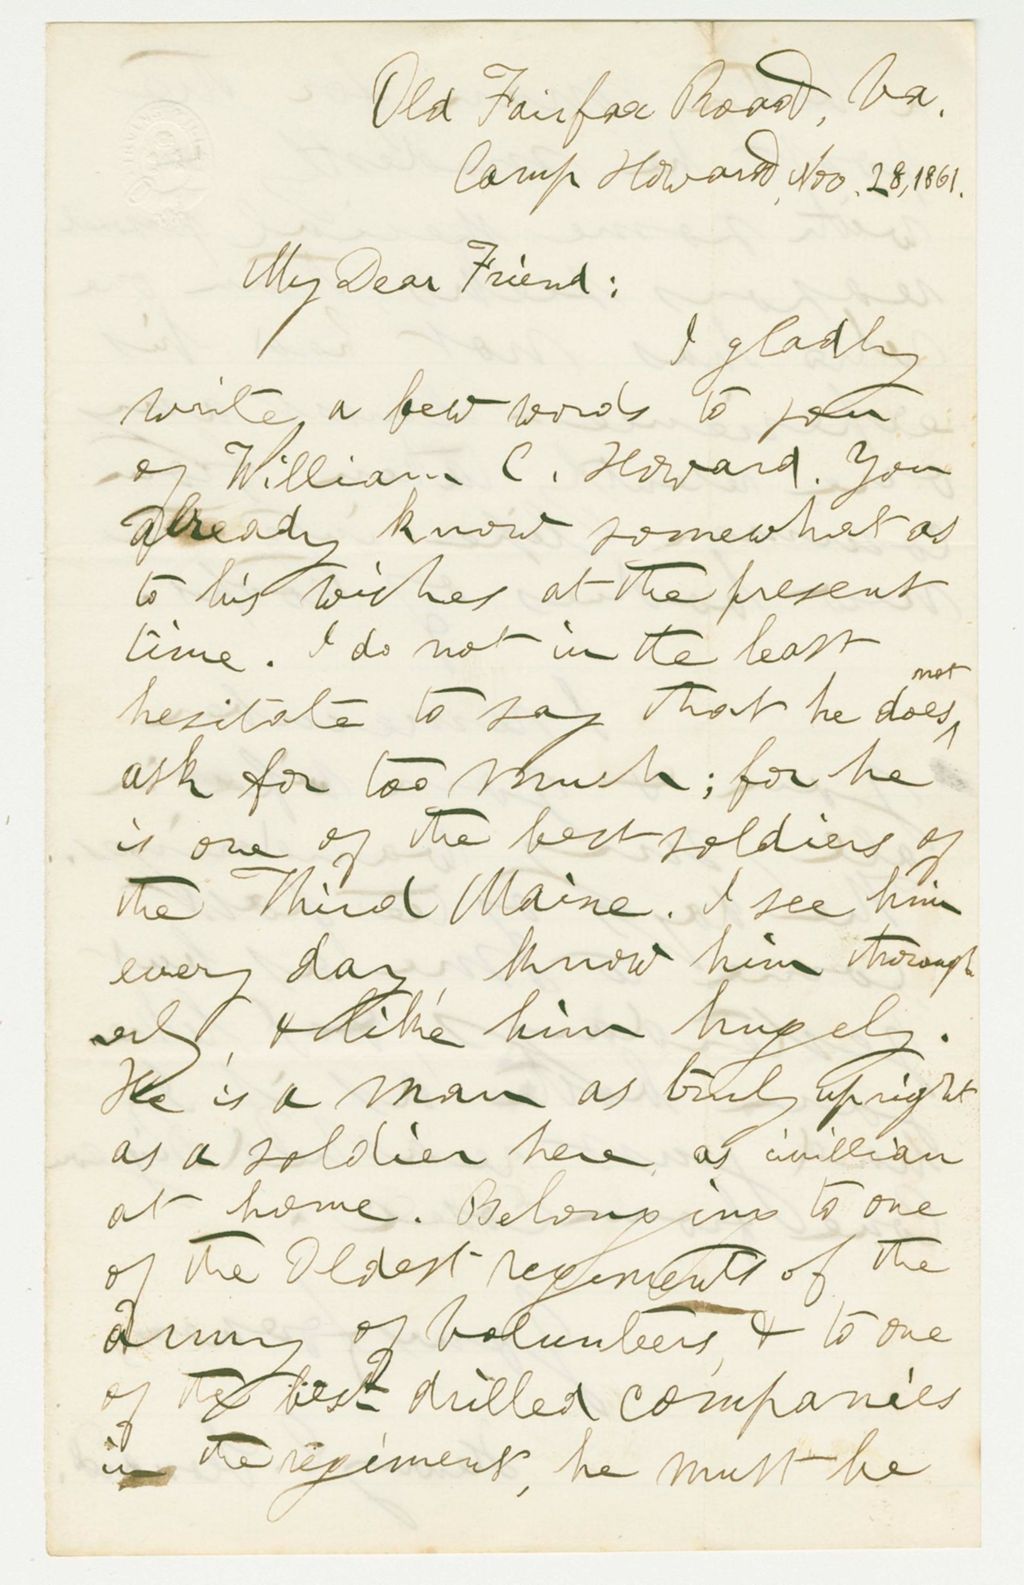 Old Fairfax Road, Va.
Camp Howard, Nov. 28, 1861.
My Dear Friend:
I gladly
write a few words to you
of William C. Howard. You
already know somewhat as
to his wishes at the present
time. I do not in the least
hesitate to say that he does not
ask for too much; for he
is one of the best soldiers of
the Third Maine. I see him
every day, know him thorough
ly, & like him hugely.
He is a man as truly upright
as a soldier here, as civillian
at home. Belonging to one
of the Oldest regiments of the
army of volunteers, & to one
of the best drilled companies
in the regiment, he must be